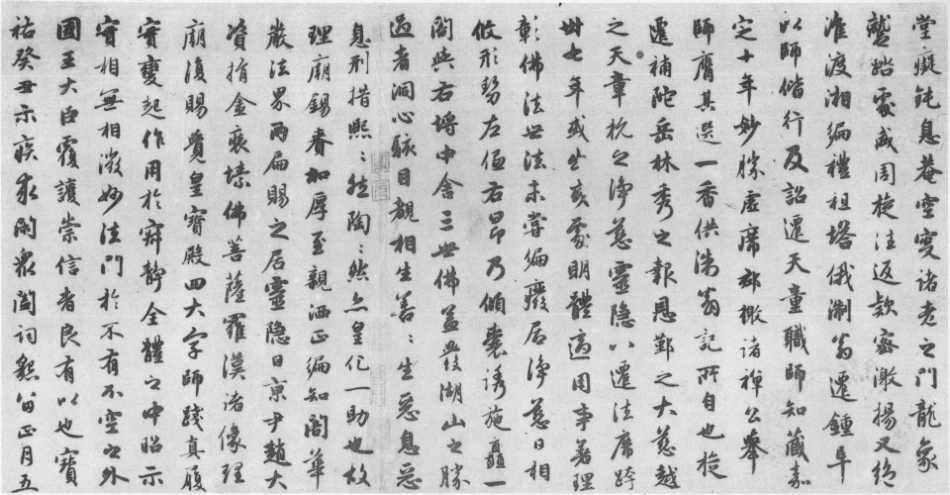 堂癡鈍息菴空叟諸老之門龍象
蹴踏處咸周旋往返款密激揚又絕
淮渡湘徧禮祖塔俄淛翁遷鍾阜
以師偕行及詔遷天童職師知藏嘉
定十年妙勝虛席郡檄諸禪公舉
師膺其選一香供淛翁記所自也旋
遷補陀岳林秀之報恩鄞之大慈越
之天章杭之淨慈靈隱八遷法席跨
卅七年處明體適用事著理
彰佛法世法未嘗偏廢居淨慈日相
攸形勢左低右昂乃傾橐誘施矗一
閣與右埒中舍三世佛盡發湖山之勝
過者洞心駭目觀相生善々生惡息惡
息刑措熙々然陶々然亦皇化一助也故
理廟錫眷加厚至親洒正徧知閣華
嚴法界兩扁賜之居靈隱日京尹趙大
資捐金裒塐佛菩薩羅漢諸像理
廟復賜覺皇寶殿四大字師踐真履
實變起作用於寂靜全體之中昭示
實相無相微妙法門於不有不空之外
國王大臣覆護崇信者良有以也寶
祐癸丑示疾求閑衆闔詞懇留正月五